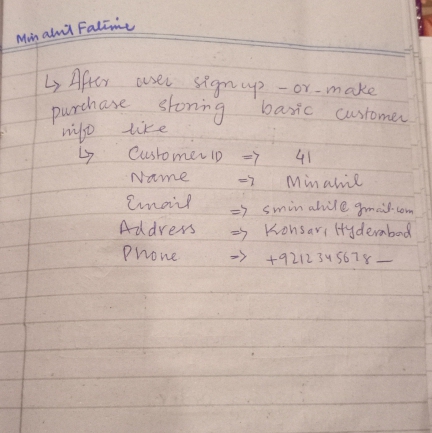 Minahil Fatime
↳ After user sign up - or - make
purchase storing basic customer
info like
↳ Customer ID => 41
Name => Minahil
Email => sminahil@gmail.com
Address => Kohsar, Hyderabad
Phone => +9212345678 —